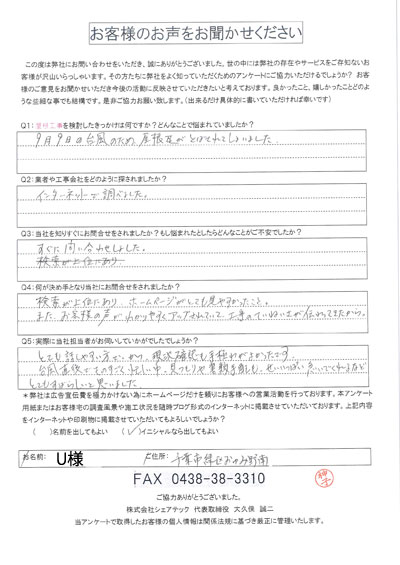 お客様のお声をお聞かせください
この度は弊社にお問い合わせをいただき、誠にありがとうございました。世の中には弊社の存在やサービスをご存知ないお
客様が沢山いらっしゃいます。その方たちに弊社をよく知っていただくためのアンケートにご協力いただけるでしょうか? お客
様のご意見をお聞かせいただき今後の活動に反映させていただきたいと考えております。良かったこと、嬉しかったことどのよ
うな些細な事でも結構です。是非ご協力お願い致します。(出来るだけ具体的に書いていただければ幸いです)
Q1:屋根工事を検討したきっかけは何ですか?どんなことで悩まれていましたか?
9月9日の台風のため、屋根瓦がとばされてしまいました。
Q2:業者や工事会社をどのように探されましたか?
インターネットで調べました。
Q3:当社を知りすぐにお問合せをされましたか?もし悩まれたとしたらどんなことがご不安でしたか?
すぐに問い合わせしました。
検索が上位にあり
Q4:何が決め手となり当社にお問合せをされましたか?
検索が上位にあり、ホームページがとても見やすかったこと。
また、お客様の声がわかりやすくアップされていて、工事のていねいさが伝わってきたから。
Q5:実際に当社担当者がお伺いしていかがでしたでしょうか?
とても話しやすい方で、現況確認も手際がよかったです。
台風直後でものすごく忙しい中、見つもりや書類手配も、せいいっぱい急いでくれるなど
とてもすばらしいと思いました。
*弊社は広告宣伝費を極力かけない為にホームページだけを頼りにお客様への営業活動を行っております。本アンケート
用紙またはお客様宅の調査風景や施工状況を随時ブログ形式のインターネットに掲載させていただいております。上記内容
をインターネットや印刷物に掲載させていただいてもよろしいでしょうか?
( )名前を出してもよい (✓)イニシャルなら出してもよい
お名前: U様 ご住所: 千葉市緑区おゆみ野南
FAX 0438-38-3310
ご協力ありがとうございました。
株式会社シェアテック 代表取締役 大久保 誠二
当アンケートで取得したお客様の個人情報は関係法規に基づき厳正に管理いたします。